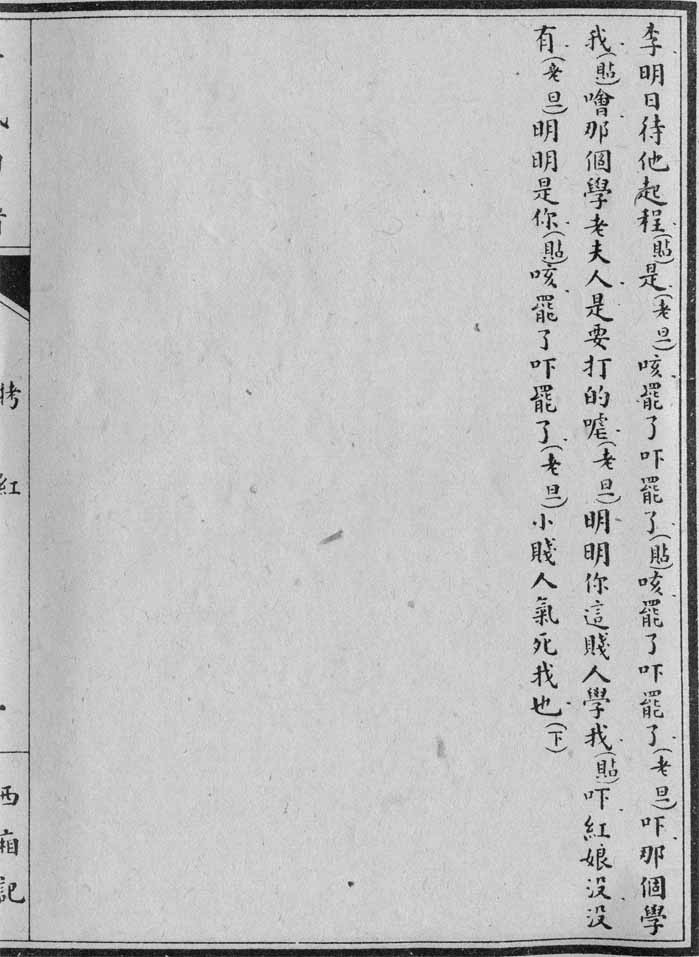 李明日待他起程(貼)是(老旦)咳罷了吓罷了(貼)咳罷了吓罷了(老旦)吓那個學
我(貼)噲那個學老夫人是要打的嘘(老旦)明明你這賤人學我(貼)吓紅娘没没
有(老旦)明明是你(貼)咳罷了吓罷了(老旦)小賤人氣死我也(下)
拷紅
西廂記